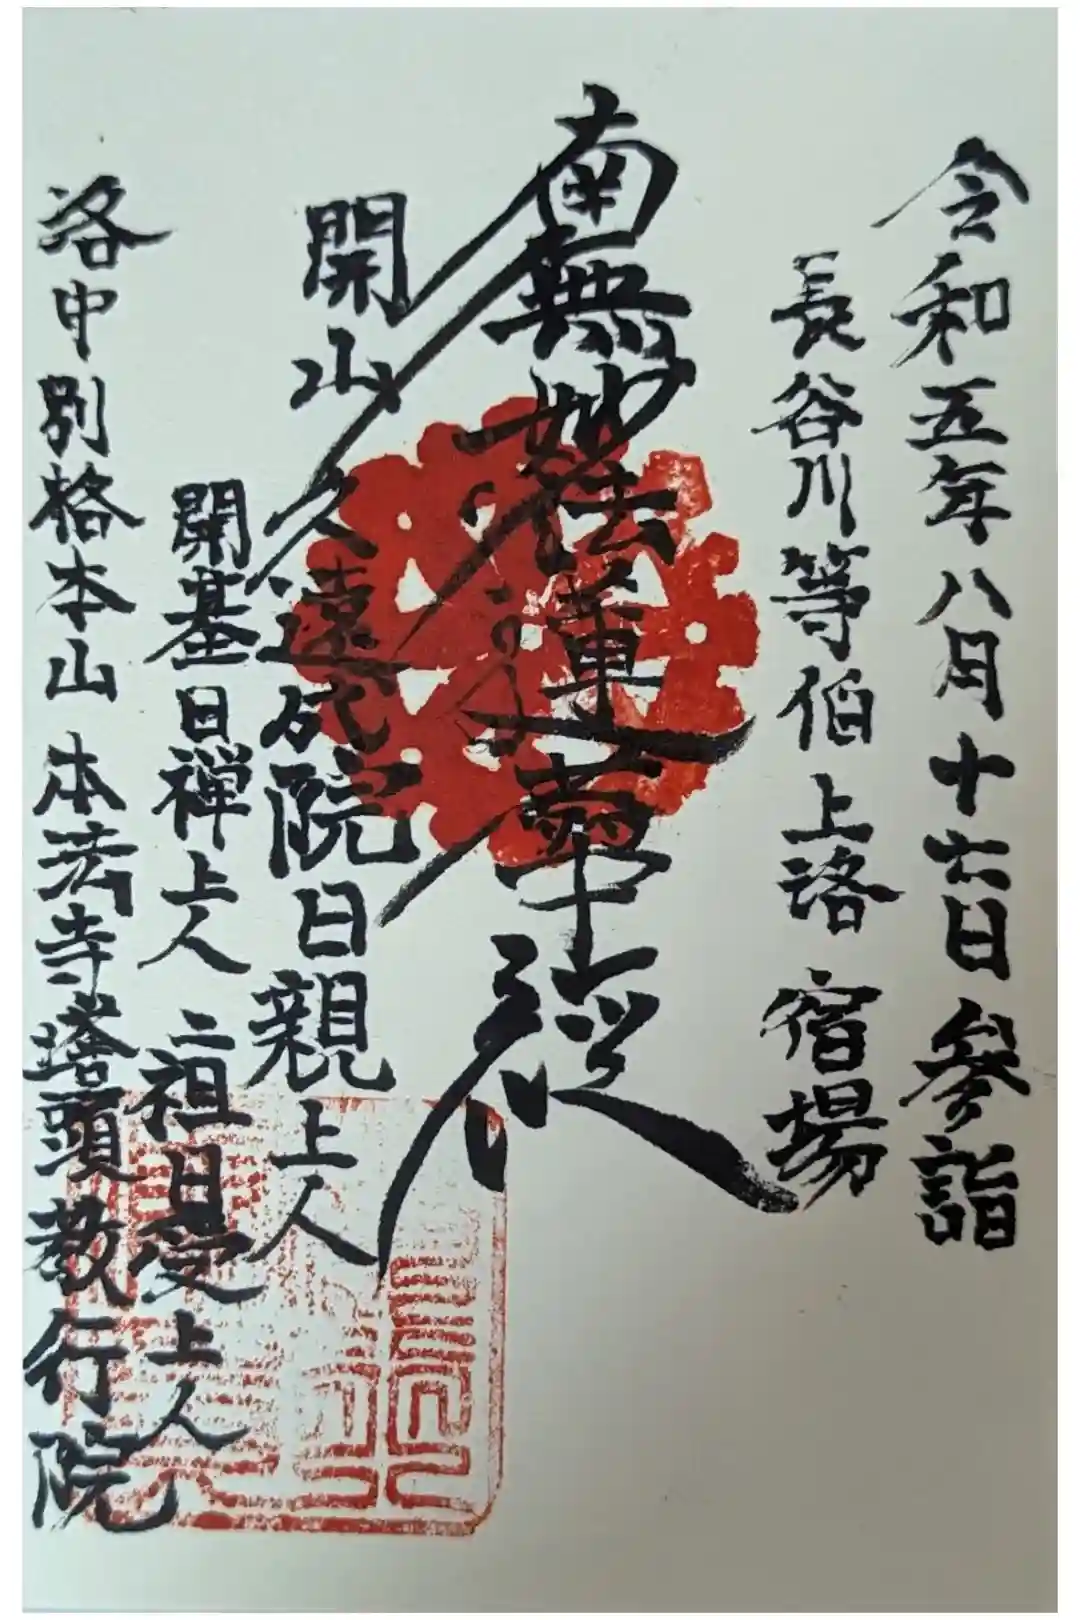 令和五年八月十六日参詣
長谷川等伯上洛宿場
南無妙法蓮華経
開山久遠成院日親上人
開基日禅上人 二祖日受上人
洛中別格本山 本法寺塔頭教行院